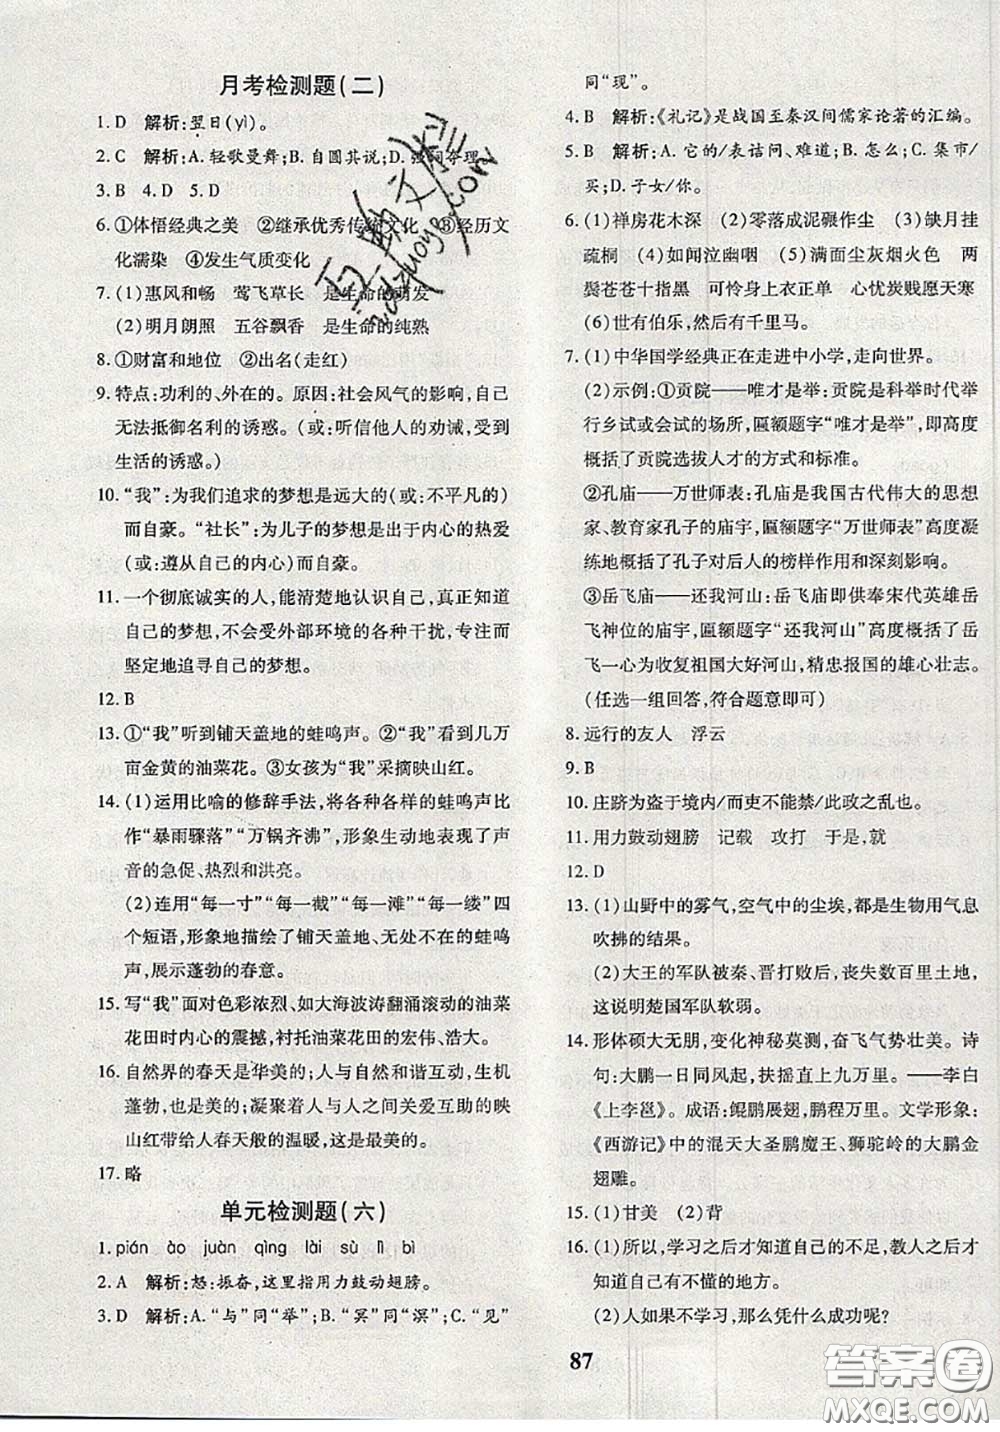 月考检测题(二)
1. D 解析:翌日(yì)。
2. C 解析:A. 轻歌曼舞;B. 自圆其说;D. 强词夺理。
3. B 4. D 5. D
6. ①体悟经典之美 ②继承优秀传统文化 ③经历文
化濡染 ④发生气质变化
7. (1)惠风和畅 莺飞草长 是生命的萌发
(2)明月朗照 五谷飘香 是生命的纯熟
8. ①财富和地位 ②出名(走红)
9. 特点:功利的、外在的。原因:社会风气的影响,自己
无法抵御名利的诱惑。(或:听信他人的劝诫,受到
生活的诱惑。)
10. “我”:为我们追求的梦想是远大的(或:不平凡的)
而自豪。“社长”:为儿子的梦想是出于内心的热爱
(或:遵从自己的内心)而自豪。
11. 一个彻底诚实的人,能清楚地认识自己,真正知道
自己的梦想,不会受外部环境的各种干扰,专注而
坚定地追寻自己的梦想。
12. B
13. ①“我”听到铺天盖地的蛙鸣声。②“我”看到几万
亩金黄的油菜花。③女孩为“我”采摘映山红。
14. (1)运用比喻的修辞手法,将各种各样的蛙鸣声比
作“暴雨骤落”“万锅齐沸”,形象生动地表现了声
音的急促、热烈和洪亮。
(2)连用“每一寸”“每一截”“每一滩”“每一缕”四
个短语,形象地描绘了铺天盖地、无处不在的蛙鸣
声,展示蓬勃的春意。
15. 写“我”面对色彩浓烈、如大海波涛翻涌滚动的油菜
花田时内心的震撼,衬托油菜花田的宏伟、浩大。
16. 自然界的春天是华美的;人与自然和谐互动,生机
蓬勃,也是美的;凝聚着人与人之间关爱互助的映
山红带给人春天般的温暖,这是最美的。
17. 略
单元检测题(六)
1. pián ào juàn qìng lài sù lì bì
2. A 解析:怒:振奋,这里指用力鼓动翅膀。
3. D 解析:A. “与”同“举”;B. “冥”同“溟”;C. “见”
同“现”。
4. B 解析:《礼记》是战国至秦汉间儒家论著的汇编。
5. B 解析:A. 它的/表诘问、难道;B. 怎么;C. 集市/
买;D. 子女/你。
6. (1)禅房花木深 (2)零落成泥碾作尘 (3)缺月挂
疏桐 (4)如闻泣幽咽 (5)满面尘灰烟火色 两
鬓苍苍十指黑 可怜身上衣正单 心忧炭贱愿天寒
(6)世有伯乐,然后有千里马。
7. (1)中华国学经典正在走进中小学,走向世界。
(2)示例:①贡院——唯才是举:贡院是科举时代举
行乡试或会试的场所,匾额题字“唯才是举”,即高度
概括了贡院选拔人才的方式和标准。
②孔庙——万世师表:孔庙是我国古代伟大的思想
家、教育家孔子的庙宇,匾额题字“万世师表”高度凝
练地概括了孔子对后人的榜样作用和深刻影响。
③岳飞庙——还我河山:岳飞庙是即供奉宋代英雄岳
飞神位的庙宇,匾额题字“还我河山”高度概括了岳
飞一心为收复祖国大好河山,精忠报国的雄心壮志。
(任选一组回答,符合题意即可)
8. 远行的友人 浮云
9. B
10. 庄蹻为盗于境内/而吏不能禁/此政之乱也。
11. 用力鼓动翅膀 记载 攻打 于是,就
12. D
13. (1)山野中的雾气,空气中的尘埃,都是生物用气息
吹拂的结果。
(2)大王的军队被秦、晋打败后,丧失数百里土地,
这说明楚国军队软弱。
14. 形体硕大无朋,变化神秘莫测,奋飞气势壮美。诗
句:大鹏一日同风起,扶摇直上九万里。——李白
《上李邕》。成语:鲲鹏展翅,鹏程万里。文学形象:
《西游记》中的混天大圣鹏魔王、狮驼岭的大鹏金
翅雕。
15. (1)甘美 (2)背
16. (1)所以,学习之后才知道自己的不足,教人之后才
知道自己有不懂的地方。
(2)人如果不学习,那么凭什么成功呢?
87
答案卷
MXQE.COM